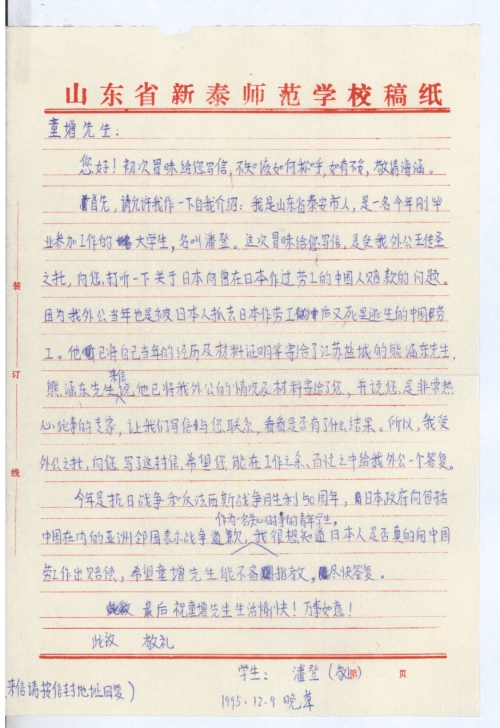 山东省新泰师范学校稿纸
童增先生：
您好！初次冒昧给您写信，不知该如何称呼，如有不妥，敬请海涵。
首先，请允许我作一下自我介绍：我是山东省泰安市人，是一名今年刚毕
业参加工作的大学生，名叫潘登。这次冒昧给您写信，是受我外公王传圣
之托，向您打听一下关于日本向曾在日本作过劳工的中国人赔款的问题。
因为我外公当年也是被日本人抓去日本作劳工后又死里逃生的中国劳
工。他已将自己当年的经历及材料证明等寄给了江苏盐城的熊涵东先生，
熊涵东先生来信说他已将我外公的情况及材料寄给了您，并说您是非常热
心此事的专家，让我们写信与您联系，看看是否有了什么结果。所以，我受
外公之托，向您写了这封信，希望您能在工作之余、百忙之中给我外公一个答复。
今年是抗日战争和反法西斯战争胜利50周年，日本政府向包括
中国在内的亚洲邻国表示战争道歉，作为一名关心时事的青年学生，我很想知道日本人是否真的向中国
劳工作出赔偿，希望童增先生能不吝指教，尽快答复。
最后祝童增先生生活愉快！万事如意！
此致 敬礼
学生：潘登（敬）
第 页
（来信请按信封地址回复）
1995.12.9 晚草
装
订
线